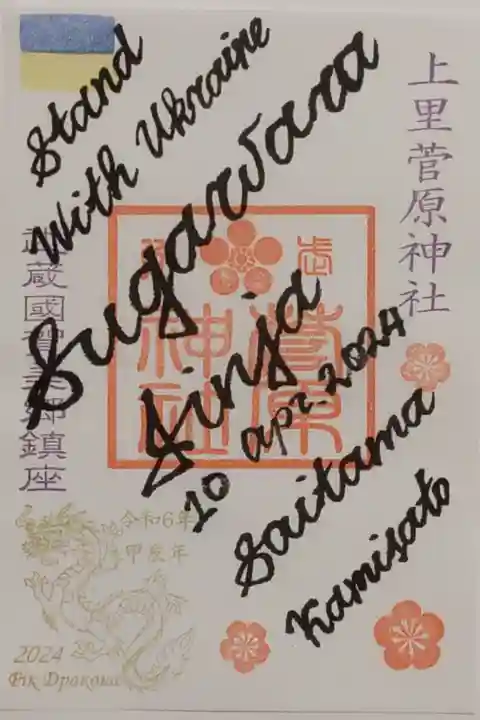 上里菅原神社
Stand
With Ukraine
Sugawara
Jinja
10 apr. 2024
Saitama
Kamisato
菅原
神社
武蔵國賀美郷鎮座
令和6年
甲辰年
2024
Рік Дракона